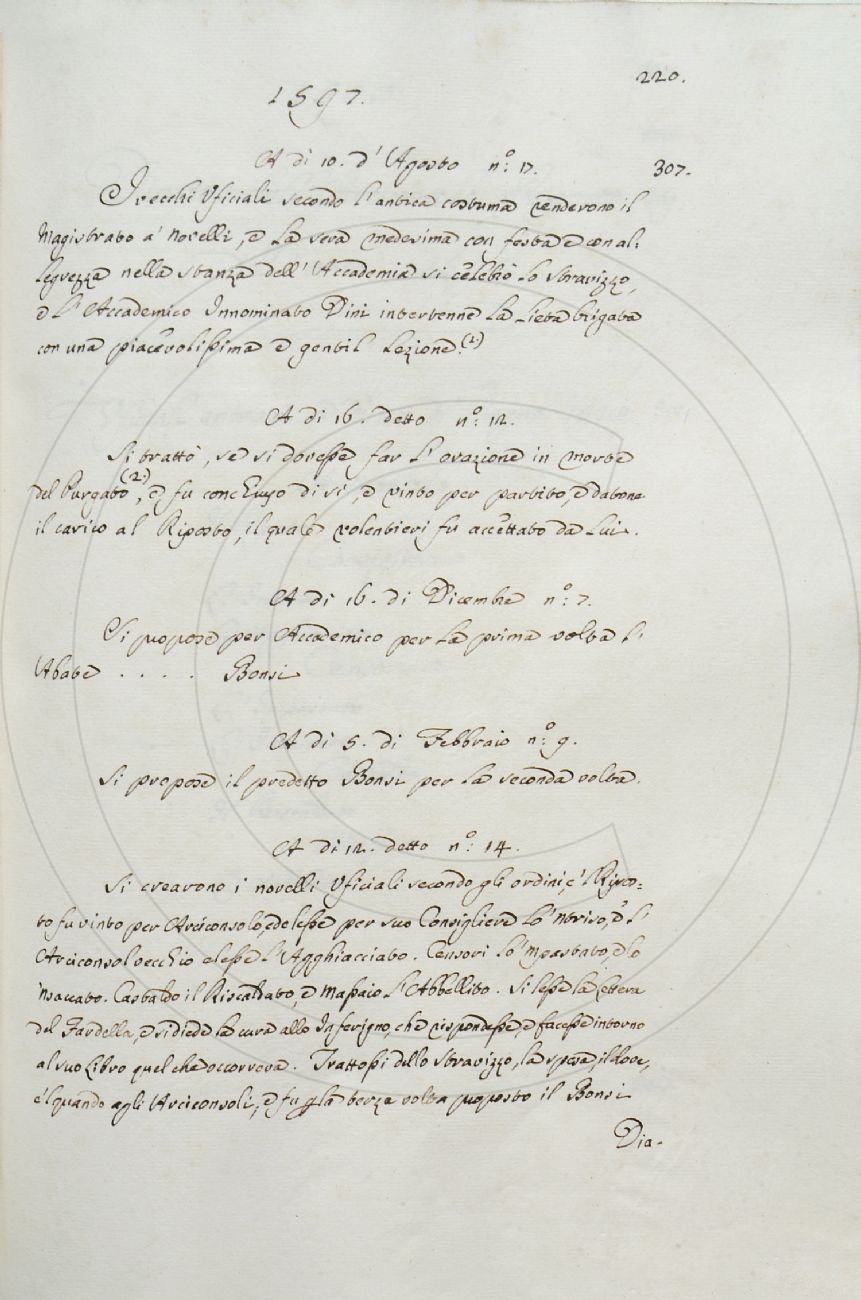 220.
1597.
A di 10. d'Agosto n.° 17.
307.
I vecchi Uficiali secondo l'antica costuma renderono il
Magistrato a' novelli, e la sera medesima con festa e con al:
legrezza nella stanza dell'Accademia si celebrò lo stravizzo,
e l'Accademico Innominato Dini intertenne la lieta brigata
con una piacevolissima e gentil lezione.(1)
A di 16. detto n.° 12.
Si trattò, se si dovesse far l'orazione in morte
del Purgato(2), e fu conchiuso di si, e vinto per partito, e datone
il carico al Riposto, il quale volentieri fu accettato da lui.
A di 16. di Dicembre n.° 7.
Si propose per Accademico per la prima volta l'
Abate . . . . Bonsi
A di 5. di Febbraio n.° 9.
Si propose il predetto Bonsi per la seconda volta.
A di 12. detto n.° 14.
Si crearono i novelli Uficiali secondo gli ordini, e'l Ripos=
to fu vinto per Arciconsolo, ed elesse per suo Consigliere lo 'ntriso, e l'
Arciconsol vecchio elesse l'Agghiacciato. Censori lo 'mpastato, e lo
'nsaccato. Castaldo il Riscaldato, e Massaio l'Abbellito. Si lesse la lettera
del Fardella, e si diede la cura allo Inferigno, che rispondesse, e facesse intorno
al suo libro quel che occorreva. Trattossi dello stravizzo, la spesa, il dove,
e'l quando agli Arciconsoli, e fu p la terza volta proposto il Bonsi
Dia-